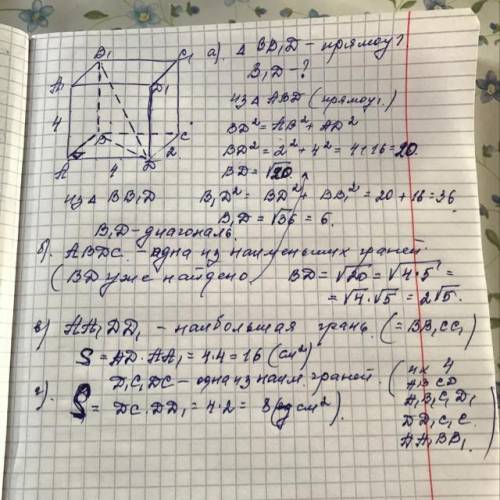 B₁ C₁
A₁ D₁
4
B C
A 4 D 2
а). Δ BB₁D – прямоуг
B₁D – ?
из Δ ABD (прямоуг.)
BD² = AB² + AD²
BD² = 2² + 4² = 4 + 16 = 20.
BD = √20.
из Δ BB₁D B₁D² = BD² + BB₁² = 20 + 16 = 36
B₁D = √36 = 6.
B₁D – диагональ.
б). ABDC. – одна из наименьших граней.
(BD уже найдено BD = √20 = √4·5 =
= √4 · √5 = 2√5.
в) AA₁DD₁ – наибольшая грань. (= BB₁CC₁)
S = AD · AA₁ = 4·4 = 16 (см²)
г). D₁C₁DC – одна из наим. граней
S = DC · DD₁ = 4·2 = 8 см²).
(их 4
ABCD
A₁B₁C₁D₁
DD₁C₁C.
AA₁BB₁)